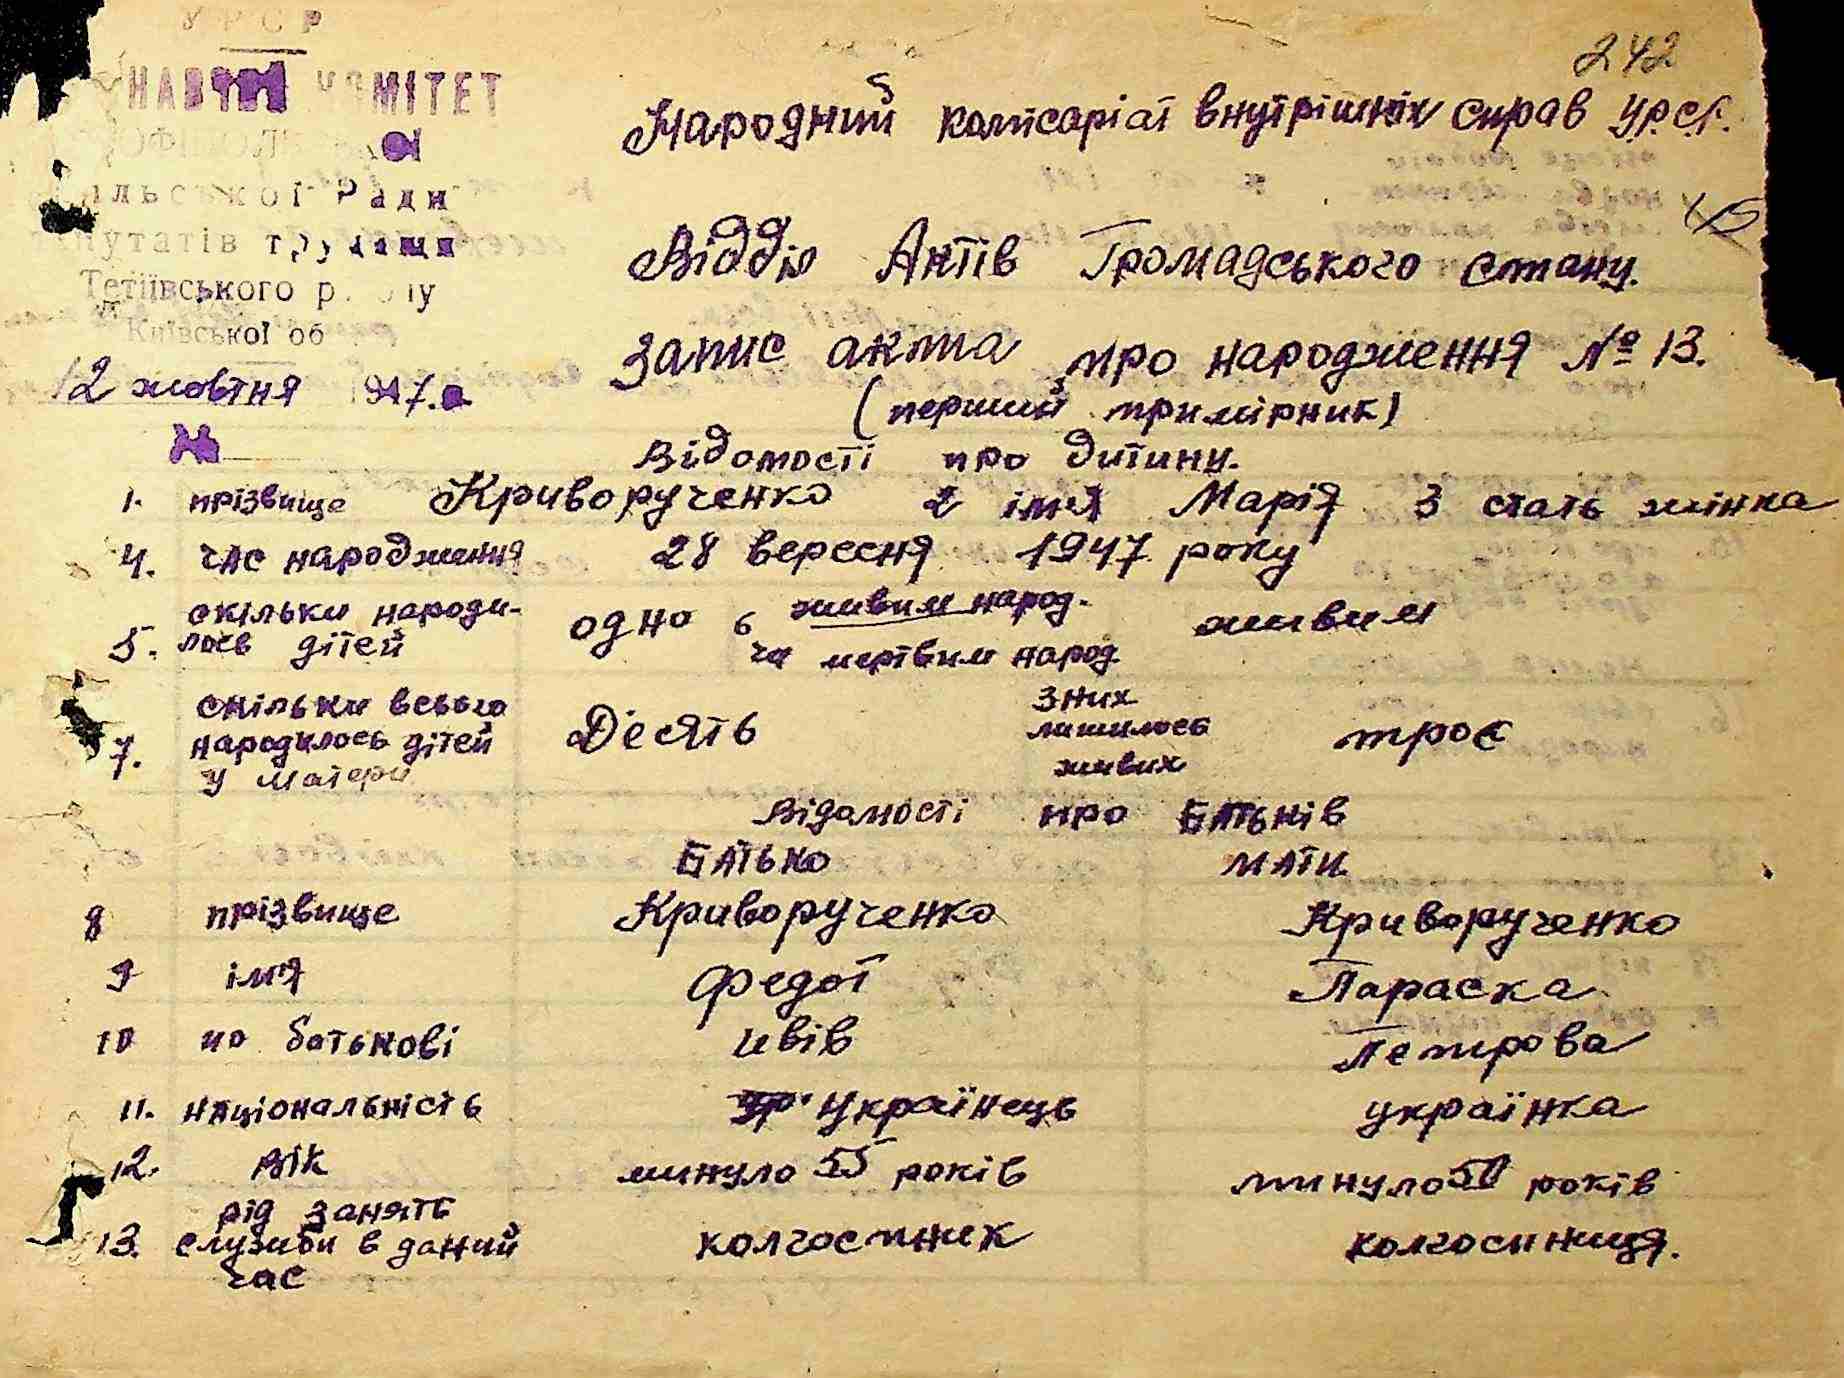 УРСР
242
КОМІТЕТ
Народний комісаріат внутрішніх справ УРСР.
Ради
трудящи
45
Відділ Актів Громадського стану.
Тетіївського р
Київської об
Запис акта про народження № 13.
12 жовтня 1947.
(перший примірник)
№
Відомості про дитину.
1. прізвище Криворученко 2 ім'я Марія 3 стать жінка
4. час народження 28 вересня 1947 року
5. скільки народи-
лось дітей одно 6 живим народ.
ча мертвим народ. живим
7. скільки всього
народилось дітей
у матери Десять
з них
лишилось
живих троє
Відомості про батьків
Батько мати
8 прізвище Криворученко Криворученко
9 ім'я Федот Параска
10 по батькові Ивів Петрова
11. національність українець українка
12. вік минуло 55 років минуло 50 років
рід занять
13. служиби в даний
час колгоспнек колгоспниця.